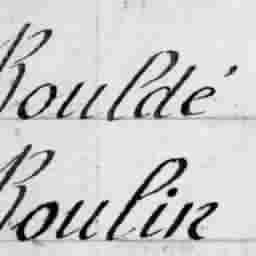 Rouldé
Roulin